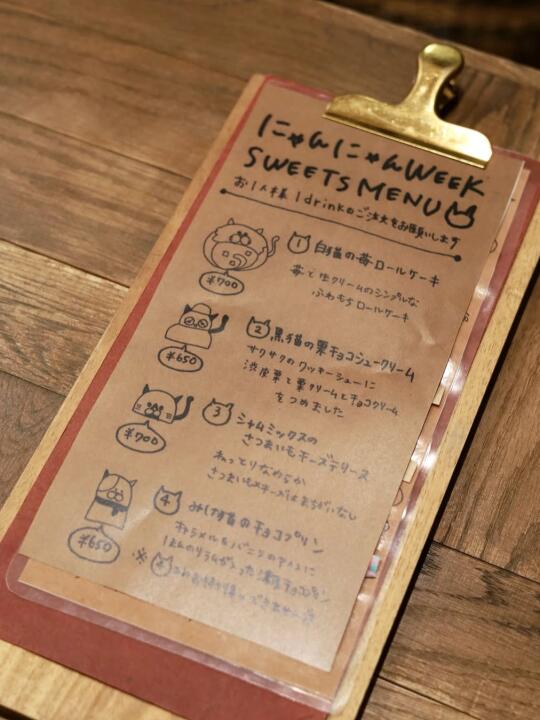 にゃんにゃんWEEK
SWEETS MENU
お1人様 1drinkのご注文をお願いします
1 白猫の苺ロールケーキ
¥700
苺と生クリームのシンプルな
ふわもちロールケーキ
2 黒猫の栗チョコシュークリーム
¥650
サクサクのクッキーシューに
渋皮栗と栗クリームとチョコクリーム
をつめました
3 シャムミックスの
さつまいもチーズテリーヌ
¥700
ねっとりなめらか
さつまいも×チーズはまちがいなし
4 みけ猫のチョコプリン
¥650
キャラメルとバニラのアイスに
チョコ
※